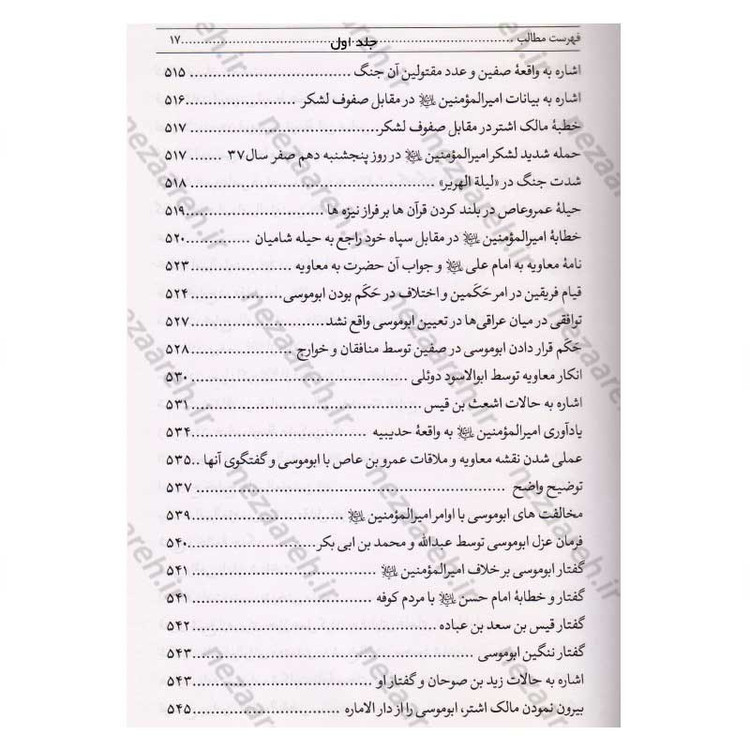 فهرست مطالب ........ جلد اول ........ ۱۷
اشاره به واقعهٔ صفین و عدد مقتولین آن جنگ ........ ۵۱۵
اشاره به بیانات امیرالمؤمنین علیه السلام در مقابل صفوف لشکر ........ ۵۱۶
خطبهٔ مالک اشتر در مقابل صفوف لشکر ........ ۵۱۷
حمله شدید لشکر امیرالمؤمنین علیه السلام در روز پنجشنبه دهم صفر سال ۳۷ ....... ۵۱۷
شدت جنگ در «لیلة الهریر» ........ ۵۱۸
حیلهٔ عمروعاص در بلند کردن قرآن ها بر فراز نیزه ها ........ ۵۱۹
خطابهٔ امیرالمؤمنین علیه السلام در مقابل سپاه خود راجع به حیله شامیان ........ ۵۲۰
نامهٔ معاویه به امام علی علیه السلام و جواب آن حضرت به معاویه ........ ۵۲۳
قیام فریقین در امر حَکَمین و اختلاف در حَکَم بودن ابوموسی ........ ۵۲۴
توافقی در میان عراقی‌ها در تعیین ابوموسی واقع نشد ........ ۵۲۷
حَکَم قرار دادن ابوموسی در صفین توسط منافقان و خوارج ........ ۵۲۸
انکار معاویه توسط ابوالاسود دوئلی ........ ۵۳۰
اشاره به حالات اشعث بن قیس ........ ۵۳۱
یادآوری امیرالمؤمنین علیه السلام به واقعهٔ حدیبیه ........ ۵۳۴
عملی شدن نقشه معاویه و ملاقات عمرو بن عاص با ابوموسی و گفتگوی آنها .. ۵۳۵
توضیح واضح ........ ۵۳۷
مخالفت های ابوموسی با اوامر امیرالمؤمنین علیه السلام ........ ۵۳۹
فرمان عزل ابوموسی توسط عبدالله و محمد بن ابی بکر ........ ۵۴۰
گفتار ابوموسی بر خلاف امیرالمؤمنین علیه السلام ........ ۵۴۱
گفتار و خطابهٔ امام حسن علیه السلام با مردم کوفه ........ ۵۴۱
گفتار قیس بن سعد بن عباده ........ ۵۴۲
گفتار ننگین ابوموسی ........ ۵۴۳
اشاره به حالات زید بن صوحان و گفتار او ........ ۵۴۳
بیرون نمودن مالک اشتر، ابوموسی را از دار الاماره ........ ۵۴۵
nezaareh.ir